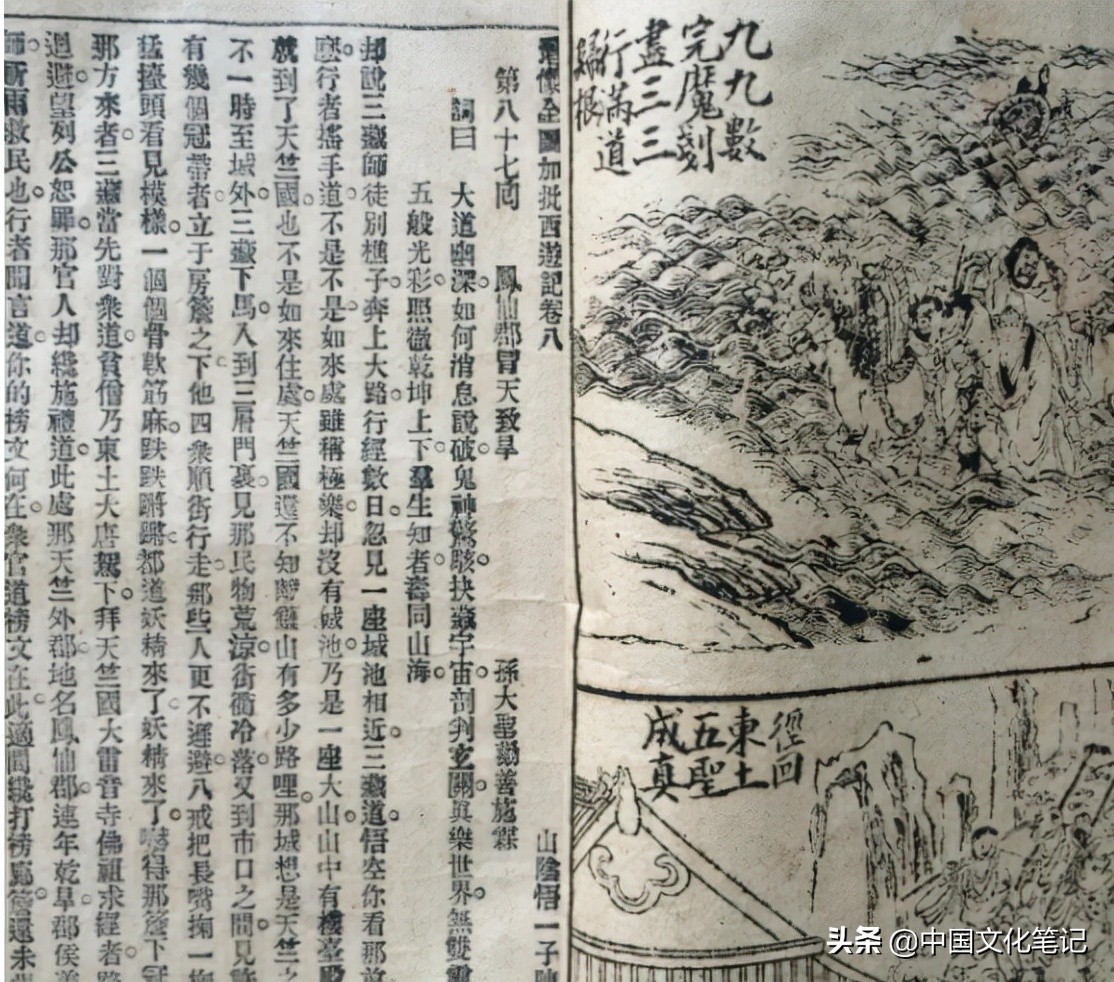 九九數
完魔剗
盡三三
行滿道
歸根
徑回
東土
五聖
成真
像全圖加批西遊記卷八 山陰悟一子陳
第八十七回 鳳仙郡冒天致旱 孫大聖勸善施霖
詞曰 大道幽深。如何消息。說破鬼神驚駭。抉藏宇宙。剖判玄關。眞樂世界。無雙靈
五般光彩。照徹乾坤。上下羣生知者。壽同山海。
却說三藏師徒別樵子。奔上大路。行經數日。忽見一座城池相近。三藏道。悟空你看那前
麽。行者搖手道。不是不是。如來處雖稱極樂。却沒有城池。乃是一座大山。山中有樓臺殿
就到了天竺國。也不是如來住處。天竺國還不知離靈山有多少路哩。那城想是天竺之
不一時至城外。三藏下馬。入到三層門裏。見那民物荒涼。街衢冷落。又到市口之間。見許
有幾個冠帶者。立于房簷之下。他四衆順街行走。那些人更不遜避。八戒把長嘴掬一掬
猛擡頭看見模樣。一個個骨軟筋麻。跌跌蹡蹡。都道妖精來了。妖精來了。嚇得那簷下冠
那方來者。三藏當先對衆道。貧僧乃東土大唐駕下。拜天竺國大雷音寺佛祖求經者。路
迴避。望列公恕罪。那官人却纔施禮道。此處那天竺外郡。地名鳳仙郡。連年乾旱。郡侯差
師祈雨救民也。行者聞言道。你的榜文何在。衆官道。榜文在此。適間纔打掃簷還未
头条 @中国文化笔记